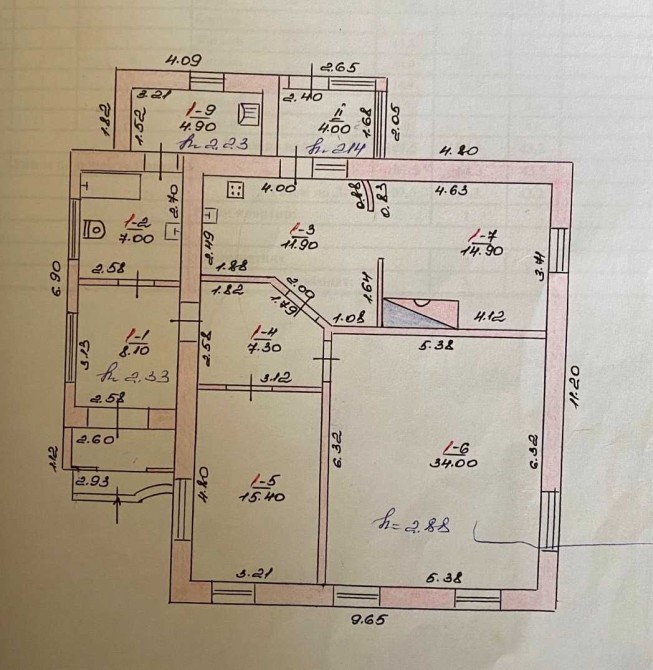 4.09
2.65
3.21
2.40
1.82
1.52
1-9
4.90
II
4.00
1.68
2.05
h=2.23
h=2.14
4.80
4.00
4.63
0.88
0.83
2.70
1-2
7.00
2.49
1-3
11.90
1-7
14.90
3.71
6.90
2.58
1.88
1.82
2.00
1.79
1.64
1.08
4.12
5.38
3.13
1-1
8.10
2.58
1-4
7.30
h=2.33
3.12
2.58
2.60
11.20
1.12
2.93
4.80
1-5
15.40
6.32
1-6
34.00
6.32
h=2.88
3.21
5.38
9.65